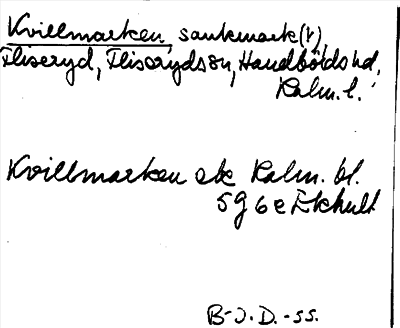 Kvillmarken, sankmark(r)
Fliseryd, Fliseryds sn, Handbörds hd,
Kalm. l.
Kvillmarken ek Kalm. bl.
5g 6e Ekhult
B-J.D.-ss.